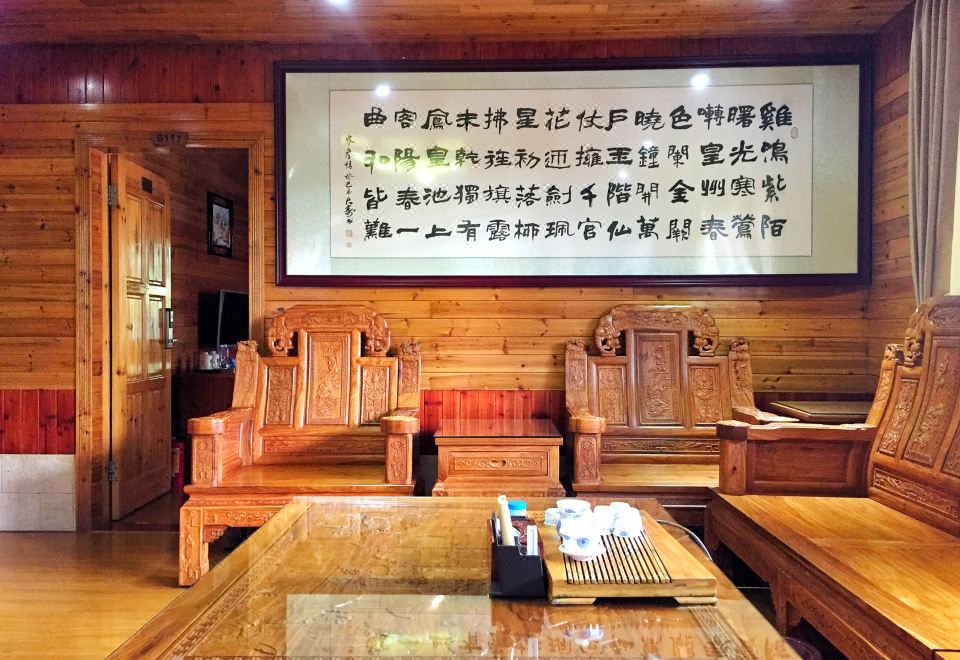 雞鳴紫陌
曙光寒鶯
囀皇州春
色闌金闕
曉鐘開萬
戶玉階仙
仗擁千官
花迎劍珮
星初落柳
拂旌旗露
未乾獨有
鳳皇池上
客陽春一
曲和皆難